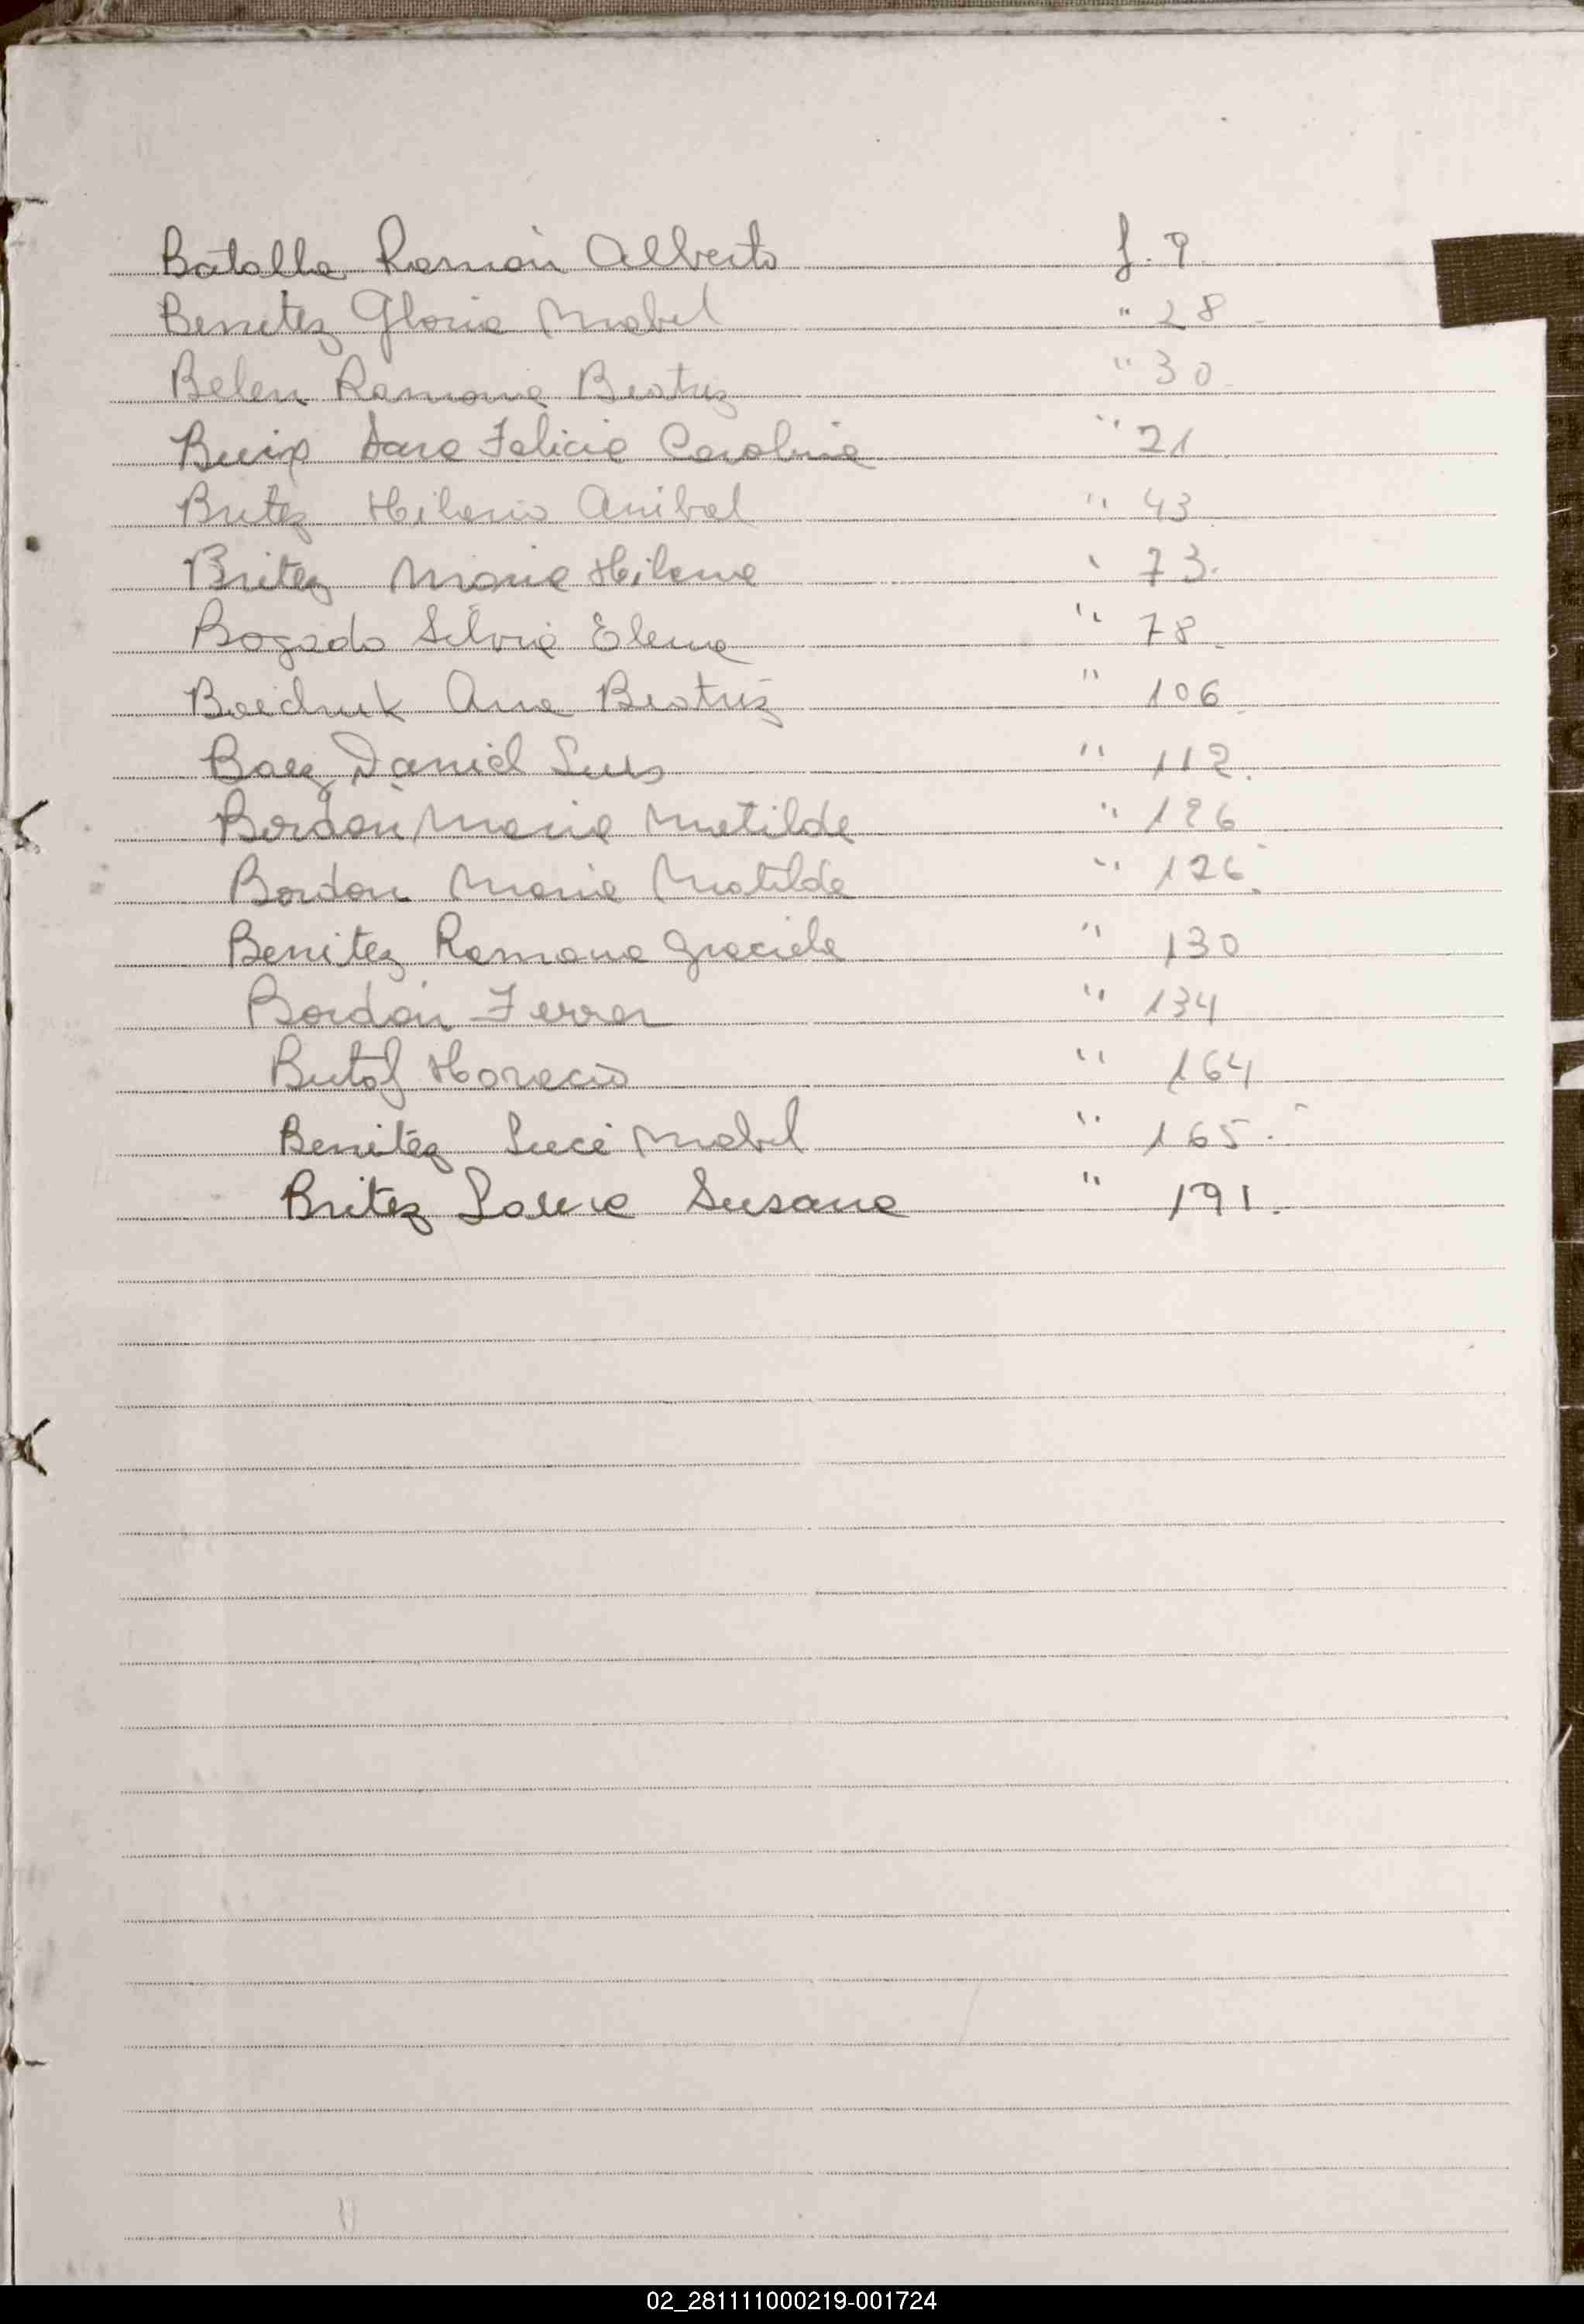 Batalla Ramón Alberto f. 9.
Benitez Gloria Mabel " 28
Belen Ramona Beatriz " 30
Sara Felicia Carolina " 21
Britez Hilario Anibal " 43
Britez Maria Hilena " 73.
Bogado Silvia Elena " 78.
Boichuk Ana Beatriz " 106.
Baez Daniel Luis " 112.
Bordón Maria Matilde " 126
Bordon Maria Matilde " 126.
Benitez Ramona Graciela " 130
Bordón Ferrer " 134
Butof Horacio " 164
Benitez Luci Mabel " 165.
Britez Laura Susana " 191.
02_281111000219-001724